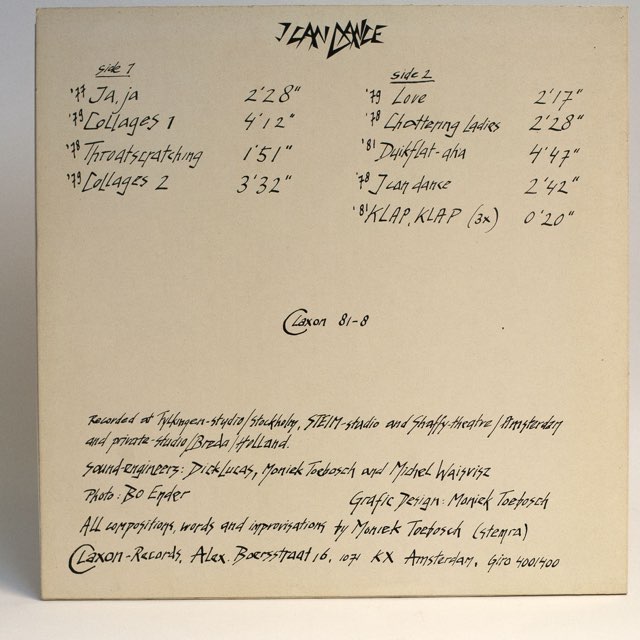 I CAN DANCE
side 1
'77 Ja, ja 2'28"
'79 Collages 1 4'12"
'78 Throatscratching 1'51"
'79 Collages 2 3'32"
side 2
'79 Love 2'17"
'78 Chattering ladies 2'28"
'81 Duikflat-aha 4'47"
'78 I can dance 2'42"
'81 KLAP, KLAP (3x) 0'20"
Claxon 81-8
Recorded at Fylkingen-studio/Stockholm, STEIM-studio and Shaffy-theatre/Amsterdam
and private-studio/Breda/Holland.
Sound-engineers: Dick Lucas, Moniek Toebosch and Michel Waisvisz
Photo: Bo Ender
Grafic Design: Moniek Toebosch
All compositions, words and improvisations by Moniek Toebosch (stemra)
Claxon-Records, Alex. Boersstraat 16, 1071 KX Amsterdam, Giro 4001400